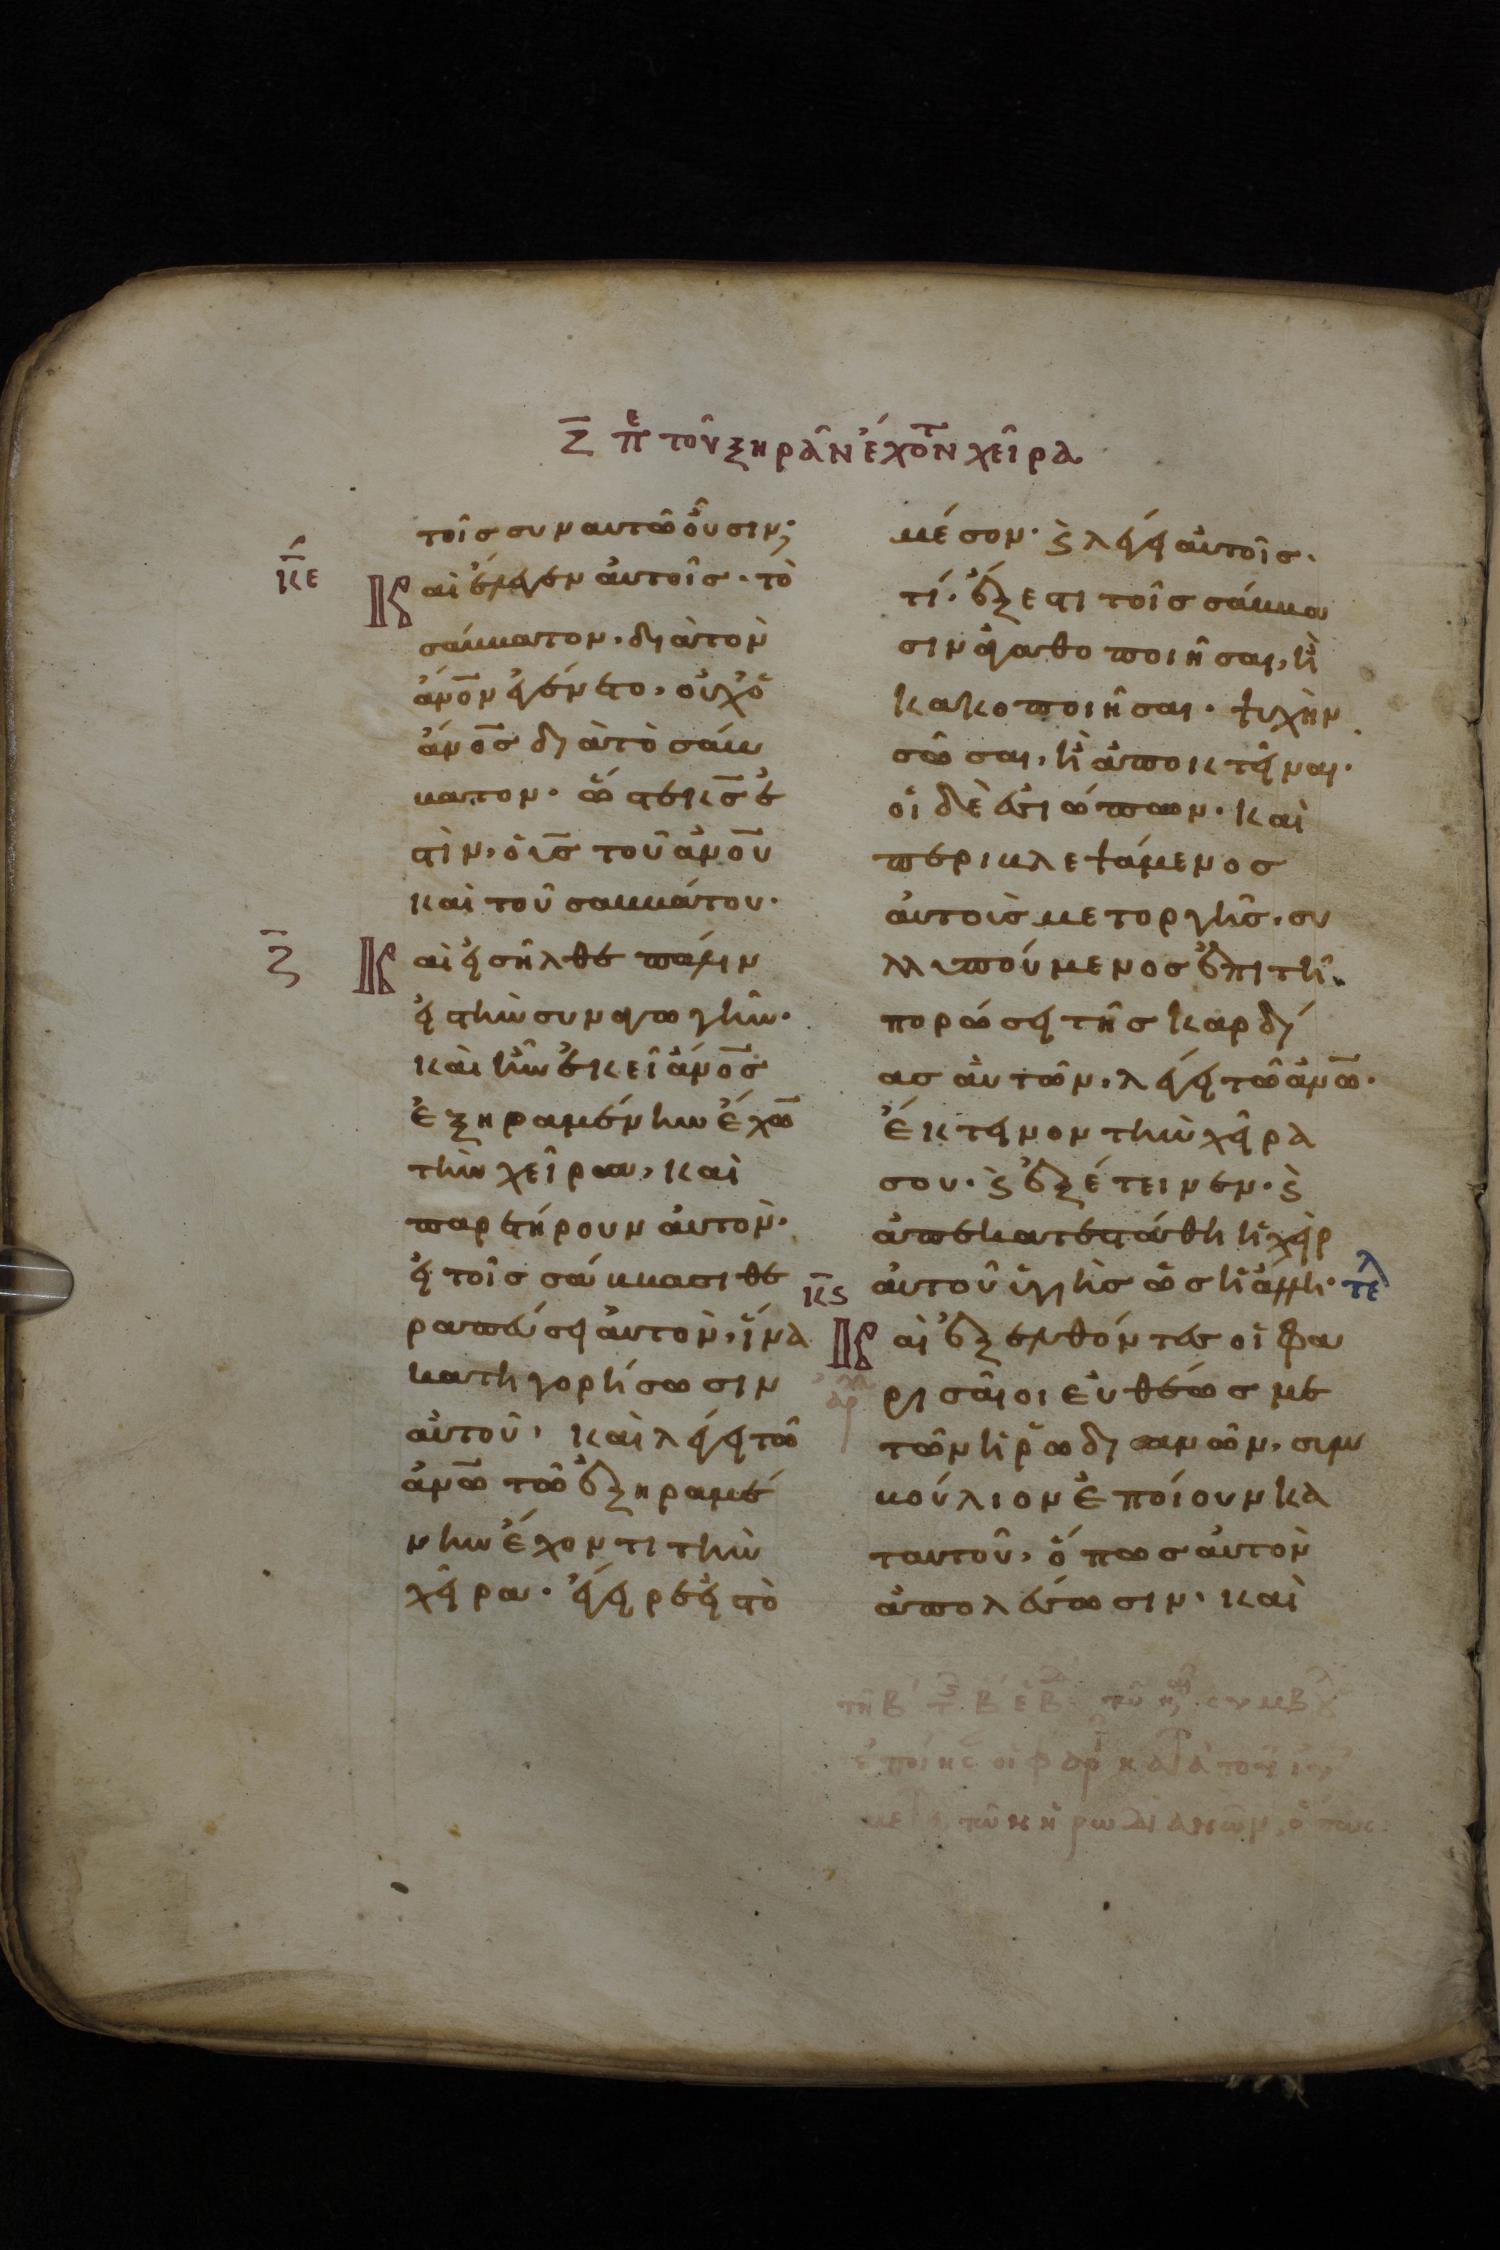 Ζ πε τοῦ ξηρὰν ἔχοντ χεῖρα
τοῖς συν αυτῶ οὖσιν;
κε
Καὶ ἔλεγεν ἀυτοῖς· τὸ
σάββατον, διὰ τὸν
ἄνον ἐγένετο, οὐχ ὁ
ἄνος διὰ τὸ σάβ
βατον· ὥστε κς ἐ
στὶν, ὁ υς τοῦ ἀνου
καὶ τοῦ σαββάτου·
ζ
Καὶ εἰσῆλθε πάλιν
εἰς τὴν συναγωγὴν·
καὶ ἦν ἐκεῖ ἄνος
ἐξηραμένην ἔχων
τὴν χεῖρα, καὶ
παρετήρουν ἀυτὸν·
εἰ τοῖς σάββασι θε
ραπεύσει ἀυτὸν, ἵνα
κατηγορήσωσιν
αὐτοῦ, καὶ λέγει τῶ
ἀνω τῶ ἐξηραμέ
νην ἔχοντι τὴν
χεῖρα· ἔγειρε εἰς τὸ
μέσον· ϗ λέγει ἀυτοῖς·
τί· ἔξεστι τοῖς σάββα
σιν ἀγαθοποιῆσαι, ἢ
κακοποιῆσαι· ψυχὴν
σῶσαι, ἢ ἀποκτεῖναι·
οἱ δὲ ἐσιώπων· καὶ
περιβλεψάμενος
ἀυτοὺς μετ οργῆς, συ
λλυπούμενος ἐπὶ τῆ
πορώσει τῆς καρδί
ας ἀυτῶν, λέγει τῶ ἀνω·
ἔκτεινον τὴν χεῖρα
σου· ϗ ἐξέτεινεν· ϗ
ἀπεκατεστάθη ἡ χεὶρ
ἀυτοῦ ὑγιὴς ὡς ἡ ἄλλη· τελ
κϛ
Καὶ ἐξελθόντες οἱ φα
ρισαῖοι εὐθέως με
τῶν ἡρωδιανῶν, συμ
βούλιον ἐποίουν κα
τ αυτοῦ, ὅπως ἀυτὸν
ἀπολέσωσιν, καὶ